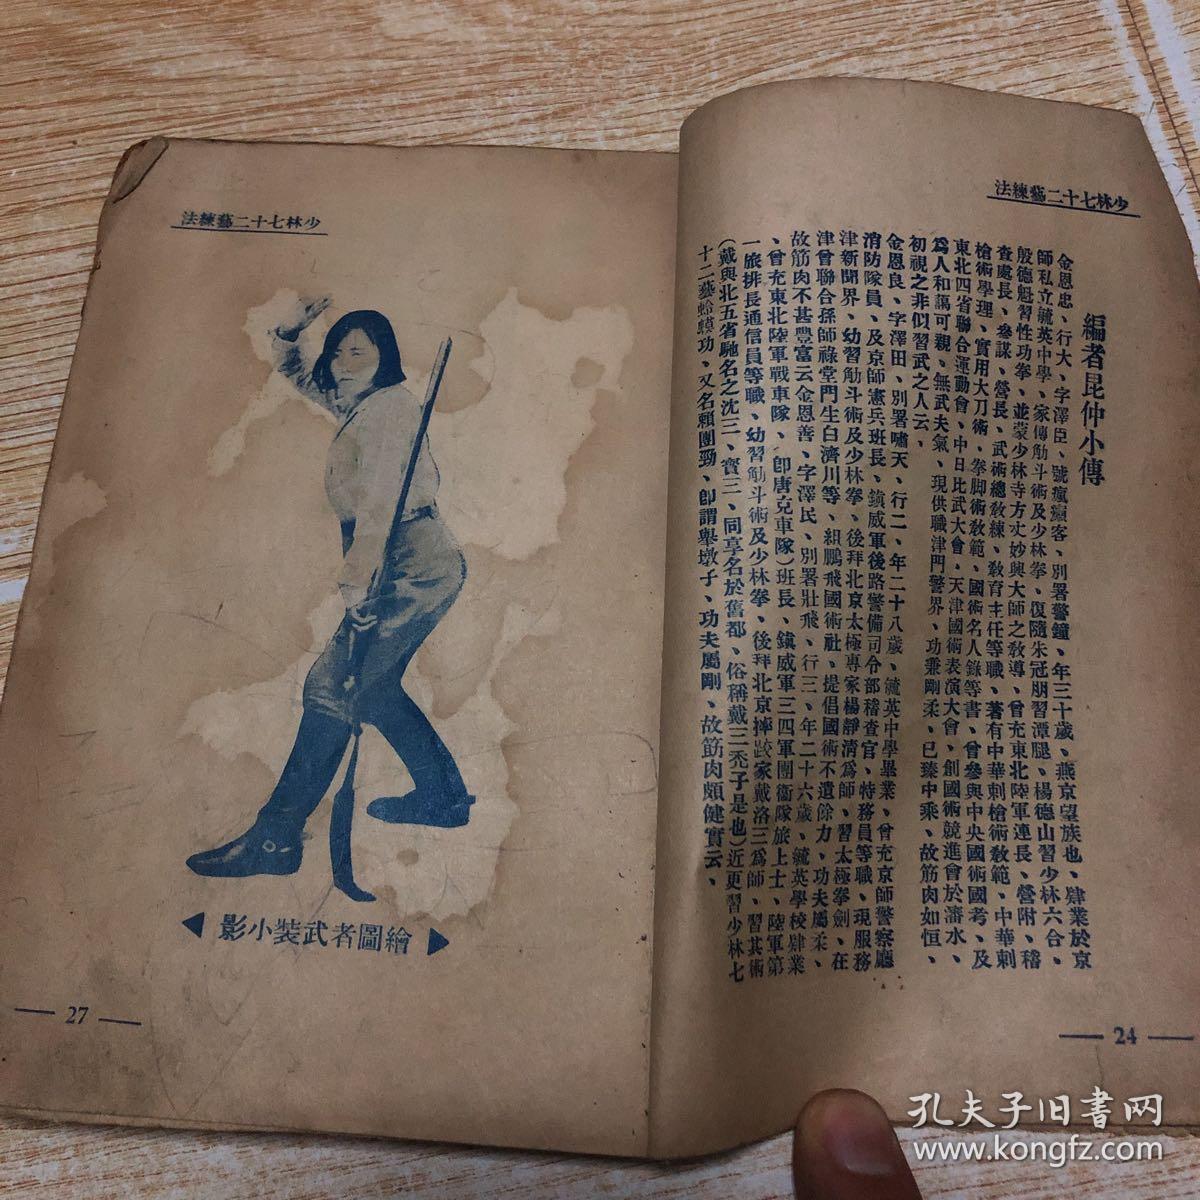 少林七十二藝練法
編者昆仲小傳
金恩忠、行大、字澤臣、號瘋癲客、別署警鐘、年三十歲、燕京望族也、肄業於京
師私立毓英中學、家傳觔斗術及少林拳、復隨朱冠朋習潭腿、楊德山習少林六合、
殷德魁習性功拳、並蒙少林寺方丈妙興大師之敎導、曾充東北陸軍連長、營附、稽
查處長、參謀、營長、武術總敎練、敎育主任等職、著有中華刺槍術敎範、中華刺
槍術學理、實用大刀術、拳脚術敎範、國術名人錄等書、曾參與中央國術國考、及
東北四省聯合運動會、中日比武大會、天津國術表演大會、創國術競進會於瀋水、
爲人和謁可親、無武夫氣、現供職津門警界、功兼剛柔、已臻中乘、故筋肉如恒、
初視之非似習武之人云、
金恩良、字澤田、別署嘯天、行二、年二十八歲、毓英中學畢業、曾充京師警察廳
消防隊員、及京師憲兵班長、鎮威軍後路警備司令部稽查官、特務員等職、現服務
津新聞界、幼習觔斗術及少林拳、後拜北京太極專家楊靜清爲師、習太極拳劍、在
津曾聯合孫師祿堂門生白濟川等、組鵬飛國術社、提倡國術不遺餘力、功夫屬柔、
故筋肉不甚豐富云金恩善、字澤民、別署壯飛、行三、年二十六歲、毓英學校肄業
、曾充東北陸軍戰車隊、（卽唐克車隊）班長、鎮威軍三四軍團衞隊旅上士、陸軍第
一旅排長通信員等職、幼習觔斗術及少林拳、後拜北京摔跤家戴洛三爲師、習其術
（戴與北五省馳名之沈三、寶三、同享名於舊都、俗稱戴三禿子是也）近更習少林七
十二藝蛤蟆功、又名賴團勁、卽謂舉墩子、功夫屬剛、故筋肉頗健實云、
24
少林七十二藝練法
繪圖者武裝小影
27
孔夫子旧书网
www.kongfz.com